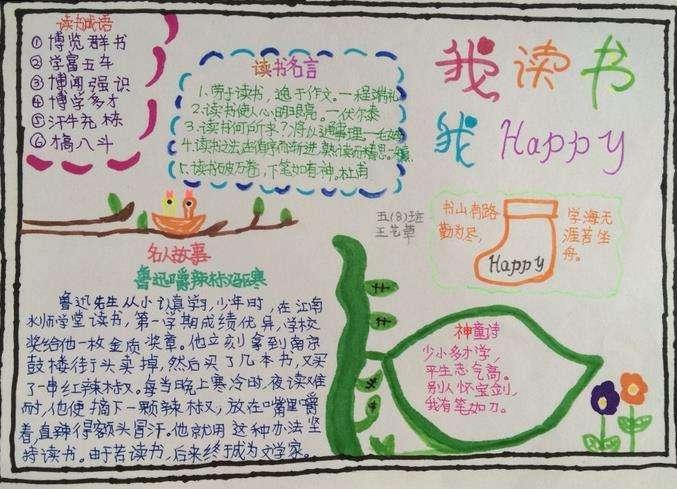 读书成语
①博览群书
②学富五车
③博闻强识
④博学多才
⑤汗牛充栋
⑥才高八斗
读书名言
1.劳于读书，逸于作文。一程端礼
2.读书使人心明眼亮。一伏尔泰
3.读书何所求？将以通事理。一
4.读书之法，当循序而渐进，熟读而精思。
5.读书破万卷，下笔如有神。杜甫
我读书
我 Happy
五(8)班
书山有路
勤为
学海无
涯苦坐
舟。
Happy
名人故事
鲁迅嚼辣椒驱寒
鲁迅先生从小认真学习，少年时，在江南
水师学堂读书，第一学期成绩优异，学校
奖给他一枚金质奖章。他立刻拿到南京
鼓楼街头卖掉，然后买了几本书，又买
了一串红辣椒。每当晚上寒冷时，夜读难
耐，他便摘下一颗辣椒，放在嘴里嚼
着，直辣得额头冒汗。他就用这种办法坚
持读书。由于苦读书，后来终于成为文学家。
神童诗
少小多才学，
平生志气高。
别人怀宝剑，
我有笔如刀。